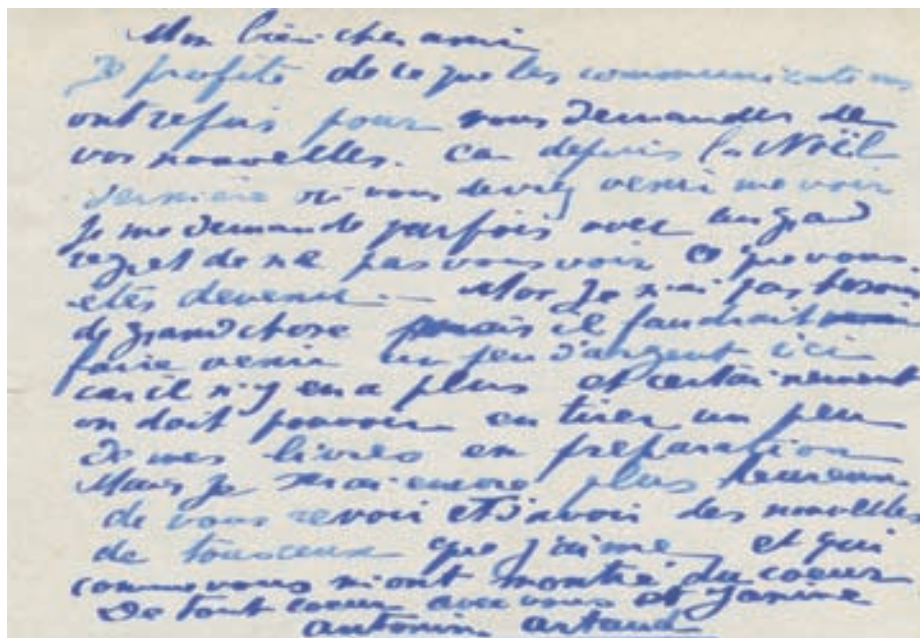 Mon bien cher ami
Je profite de ce que les communications
ont repris pour vous demander de
vos nouvelles. Car depuis la Noël
dernière où vous deviez venir me voir
je me demande parfois avec un grand
regret de ne pas vous voir ce que vous
êtes devenu. — Moi je n'ai pas besoin
de grand chose mais il faudrait
faire venir un peu d'argent ici
car il n'y en a plus et certainement
on doit pouvoir en tirer un peu
de mes livres en préparation
Mais je serai encore plus heureux
de vous revoir et d'avoir des nouvelles
de tous ceux que j'aime et qui
comme vous m'ont montré du coeur
De tout coeur avec vous et Janine
Antonin Artaud